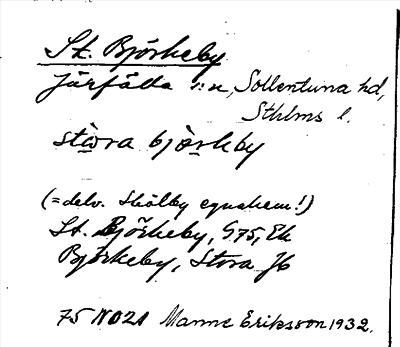 St. Björkeby
Järfälla s:n, Sollentuna hd,
Sthlms l.
stòra bjò̱rkby
(=delv. Skälby egnahem!)
St. Björkeby, G75, Ek
Björkeby, Stora Jb
75 NO21 Manne Eriksson 1932.